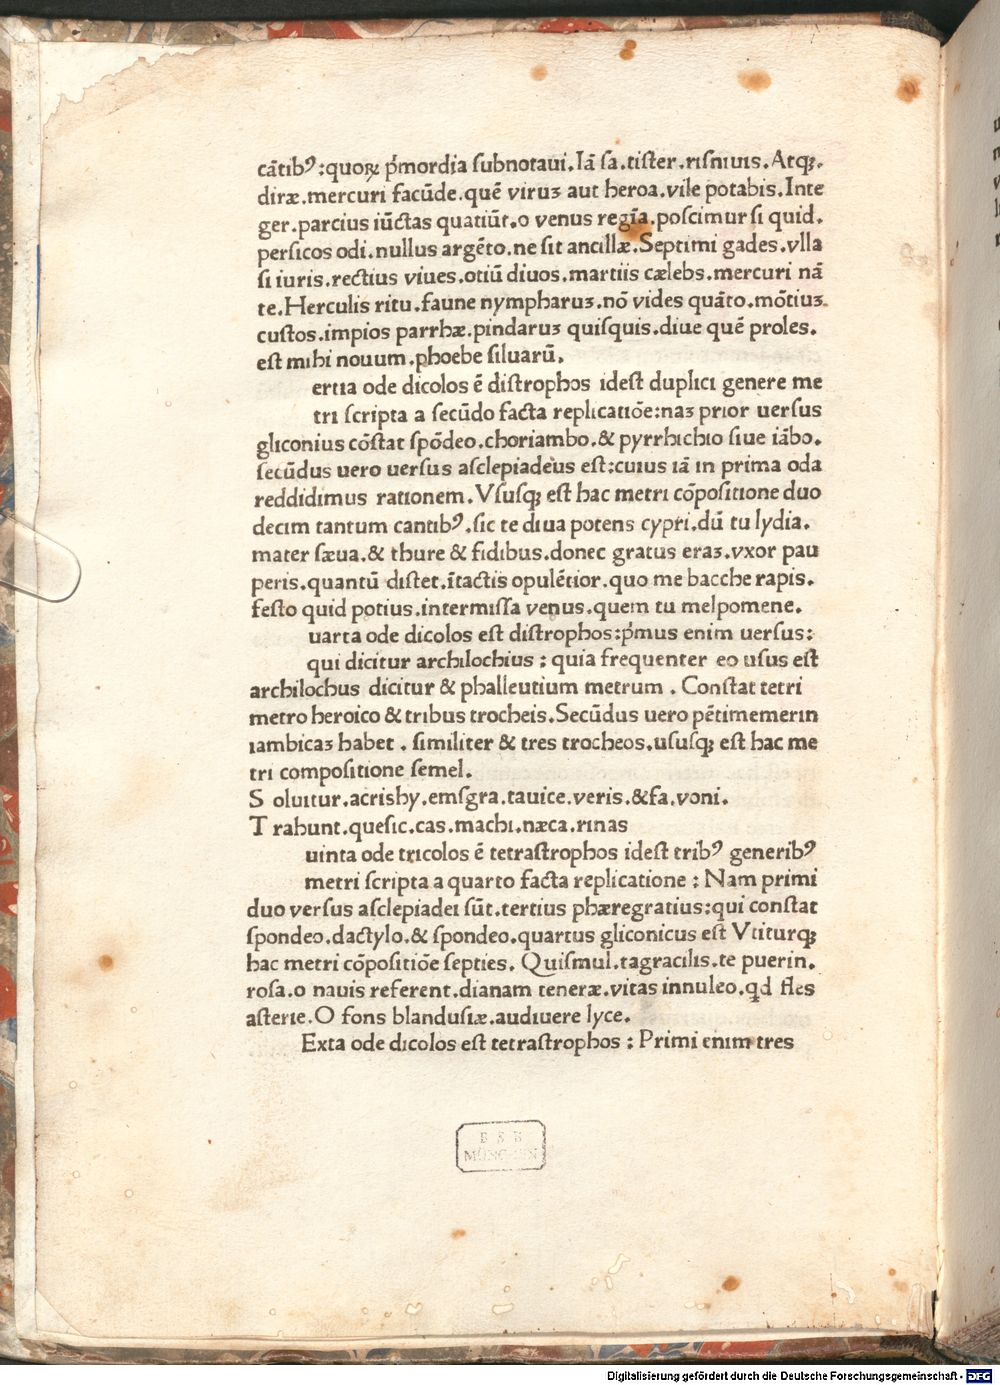 cãtibꝰ:quoꝝ p̃mordia subnotaui.Iã sa.tister.risniuis.Atqꝫ.
diræ.mercuri facũde.quẽ viruꝫ aut heroa.vile potabis.Inte
ger.parcius iũctas quatiũt.o venus regĩa.poscimur si quid.
persicos odi.nullus argẽto.ne sit ancillæ.Septimi gades.vlla
si iuris.rectius viues.otiũ diuos.martiis cælebs.mercuri nã
te.Herculis ritu.faune nympharuꝫ.nõ vides quãto.mõtiuꝫ
custos.impios parrhæ.pindaruꝫ quisquis.diue quẽ proles.
est mihi nouum.phoebe siluarũ.
ertia ode dicolos ẽ distrophos idest duplici genere me
tri scripta a secũdo facta replicatiõe:naꝫ prior uersus
gliconius cõstat spõdeo.choriambo.& pyrrhichio siue iãbo.
secũdus uero uersus asclepiadeus est:cuius iã in prima oda
reddidimus rationem.Vsusqꝫ est hac metri cõpositione duo
decim tantum cantibꝰ.sic te diua potens cypri.dũ tu lydia.
mater sæua.& thure & fidibus.donec gratus eraꝫ.vxor pau
peris.quantũ distet.ĩtactis opulẽtior.quo me bacche rapis.
festo quid potius.intermissa venus.quem tu melpomene.
uarta ode dicolos est distrophos:p̃mus enim uersus:
qui dicitur archilochius : quia frequenter eo usus est
archilochus dicitur & phalleutium metrum . Constat tetri
metro heroico & tribus trocheis.Secũdus uero pẽtimemerin
iambicaꝫ habet . similiter & tres trocheos.ususqꝫ est hac me
tri compositione semel.
S oluitur.acrishy.emsgra.tauice.veris.&fa.voni.
T rahunt.quesic.cas.machi.næca.rinas
uinta ode tricolos ẽ tetrastrophos idest tribꝰ generibꝰ
metri scripta a quarto facta replicatione : Nam primi
duo versus asclepiadei sũt.tertius phæregratius:qui constat
spondeo.dactylo.& spondeo.quartus gliconicus est Vtiturqꝫ
hac metri cõpositiõe septies. Quismul.tagracilis.te puerin.
rosa.o nauis referent.dianam teneræ.vitas innuleo.qd fles
asterie.O fons blandusiæ.audiuere lyce.
Exta ode dicolos est tetrastrophos : Primi enim tres
BSB
MÜNCHEN
Digitalisierung gefördert durch die Deutsche Forschungsgemeinschaft - DFG